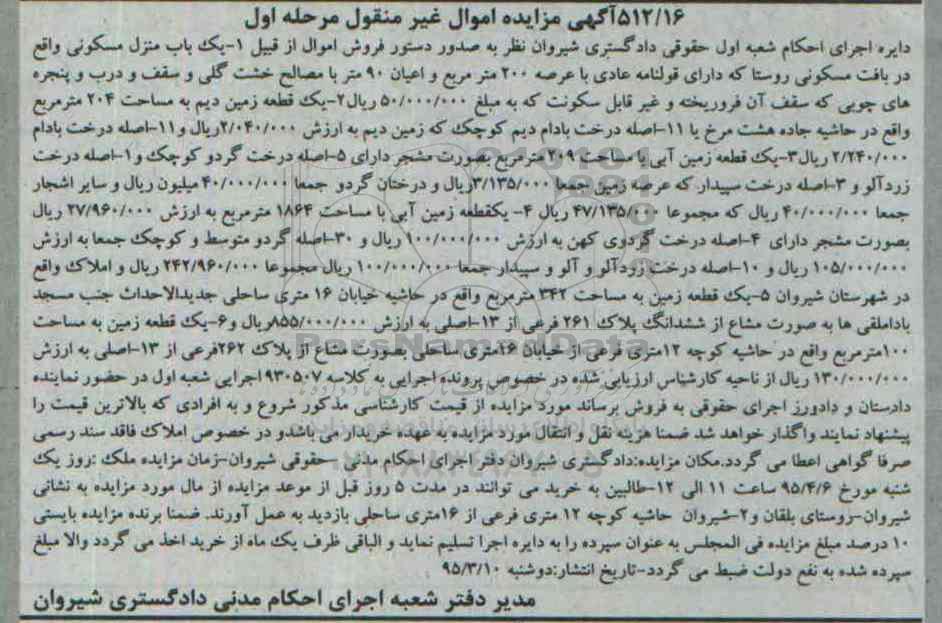 ۵۱۲/۱۶آگهی مزایده اموال غیر منقول مرحله اول
دایره اجرای احکام شعبه اول حقوقی دادگستری شیروان نظر به صدور دستور فروش اموال از قبیل ۱-یک باب منزل مسکونی واقع
در بافت مسکونی روستا که دارای قولنامه عادی با عرصه ۲۰۰ متر مربع و اعیان ۹۰ متر با مصالح خشت گلی و سقف و درب و پنجره
های چوبی که سقف آن فروریخته و غیر قابل سکونت که به مبلغ ۵۰/۰۰۰/۰۰۰ ریال۲-یک قطعه زمین دیم به مساحت ۲۰۴ مترمربع
واقع در حاشیه جاده هشت مرخ با ۱۱-اصله درخت بادام دیم کوچک که زمین دیم به ارزش ۲/۰۴۰/۰۰۰ریال و ۱۱-اصله درخت بادام
۲/۲۴۰/۰۰۰ ریال۳-یک قطعه زمین آبی با مساحت ۲۰۹ مترمربع بصورت مشجر دارای ۵-اصله درخت گردو کوچک و ۱-اصله درخت
زردآلو و ۳-اصله درخت سپیدار که عرصه زمین جمعا ۳/۱۳۵/۰۰۰ریال و درختان گردو جمعا ۴۰/۰۰۰/۰۰۰ میلیون ریال و سایر اشجار
جمعا ۴۰/۰۰۰/۰۰۰ ریال که مجموعا ۴۷/۱۳۵/۰۰۰ ریال ۴- یکقطعه زمین آبی با مساحت ۱۸۶۴ مترمربع به ارزش ۲۷/۹۶۰/۰۰۰ ریال
بصورت مشجر دارای ۴-اصله درخت گردوی کهن به ارزش ۱۰۰/۰۰۰/۰۰۰ ریال و ۳۰-اصله گردو متوسط و کوچک جمعا به ارزش
۱۰۵/۰۰۰/۰۰۰ ریال و ۱۰-اصله درخت زردآلو و آلو و سپیدار جمعا ۱۰۰/۰۰۰/۰۰۰ ریال مجموعا ۲۴۲/۹۶۰/۰۰۰ ریال و املاک واقع
در شهرستان شیروان ۵-یک قطعه زمین به مساحت ۳۴۲ مترمربع واقع در حاشیه خیابان ۱۶ متری ساحلی جدیدالاحداث جنب مسجد
باداملقی ها به صورت مشاع از ششدانگ پلاک ۲۶۱ فرعی از ۱۳-اصلی به ارزش ۸۵۵/۰۰۰/۰۰۰ریال و۶-یک قطعه زمین به مساحت
۱۰۰مترمربع واقع در حاشیه کوچه ۱۲متری فرعی از خیابان ۱۶متری ساحلی بصورت مشاع از پلاک ۲۶۲فرعی از ۱۳-اصلی به ارزش
۱۳۰/۰۰۰/۰۰۰ ریال از ناحیه کارشناس ارزیابی شده در خصوص پرونده اجرایی به کلاسه ۹۳۰۵۰۷اجرایی شعبه اول در حضور نماینده
دادستان و دادورز اجرای حقوقی به فروش برساند مورد مزایده از قیمت کارشناسی مذکور شروع و به افرادی که بالاترین قیمت را
پیشنهاد نمایند واگذار خواهد شد ضمنا هزینه نقل و انتقال مورد مزایده به عهده خریدار می باشدو در خصوص املاک فاقد سند رسمی
صرفا گواهی اعطا می گردد.مکان مزایده:دادگستری شیروان دفتر اجرای احکام مدنی -حقوقی شیروان-زمان مزایده ملک :روز یک
شنبه مورخ ۹۵/۴/۶ ساعت ۱۱ الی ۱۲-طالبین به خرید می توانند در مدت ۵ روز قبل از موعد مزایده از مال مورد مزایده به نشانی
شیروان-روستای بلقان و۲-شیروان حاشیه کوچه ۱۲ متری فرعی از ۱۶متری ساحلی بازدید به عمل آورند. ضمنا برنده مزایده بایستی
۱۰ درصد مبلغ مزایده فی المجلس به عنوان سپرده را به دایره اجرا تسلیم نماید و الباقی ظرف یک ماه از خرید اخذ می گردد والا مبلغ
سپرده شده به نفع دولت ضبط می گردد-تاریخ انتشار:دوشنبه ۹۵/۳/۱۰
مدیر دفتر شعبه اجرای احکام مدنی دادگستری شیروان
ParsNamadData